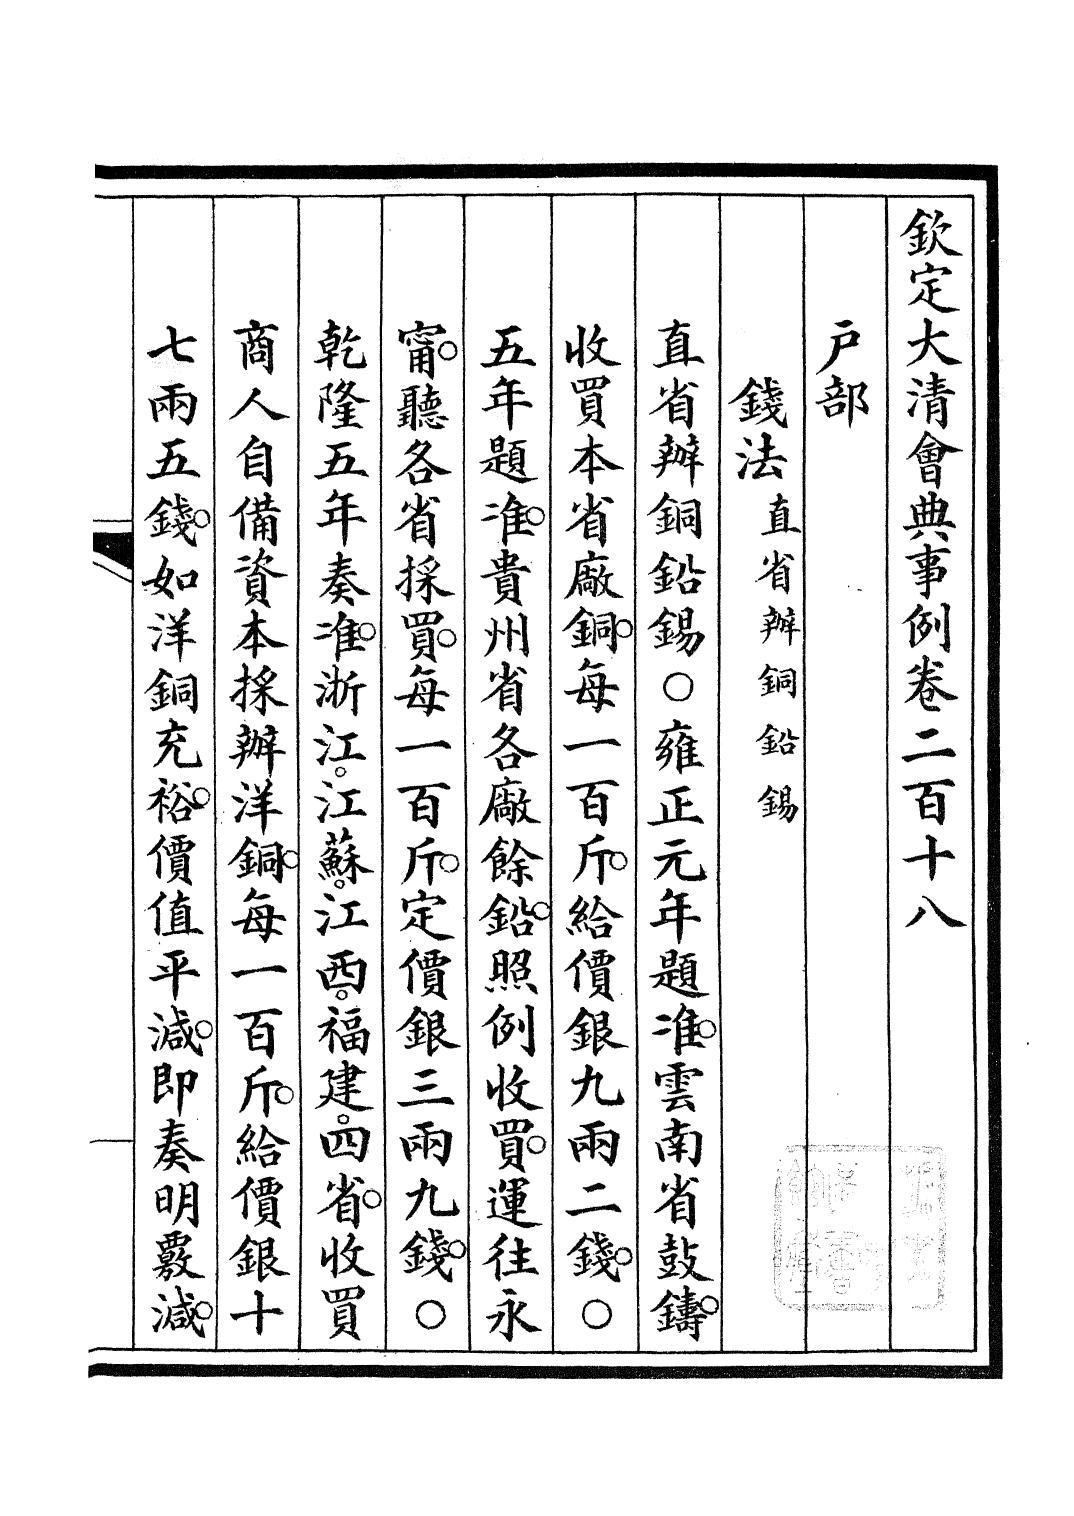 欽定大清會典事例卷二百十八
戶部
錢法直省辦銅鉛錫
直省辦銅鉛錫○雍正元年題准。雲南省鼓鑄。
收買本省廠銅。每一百斤。給價銀九兩二錢。○
五年題准。貴州省各廠餘鉛。照例收買。運往永
甯。聽各省採買。每一百斤。定價銀三兩九錢。○
乾隆五年奏准。浙江。江蘇。江西。福建。四省。收買
商人自備資本採辦洋銅。每一百斤。給價銀十
七兩五錢。如洋銅充裕。價值平減。即奏明覈減。